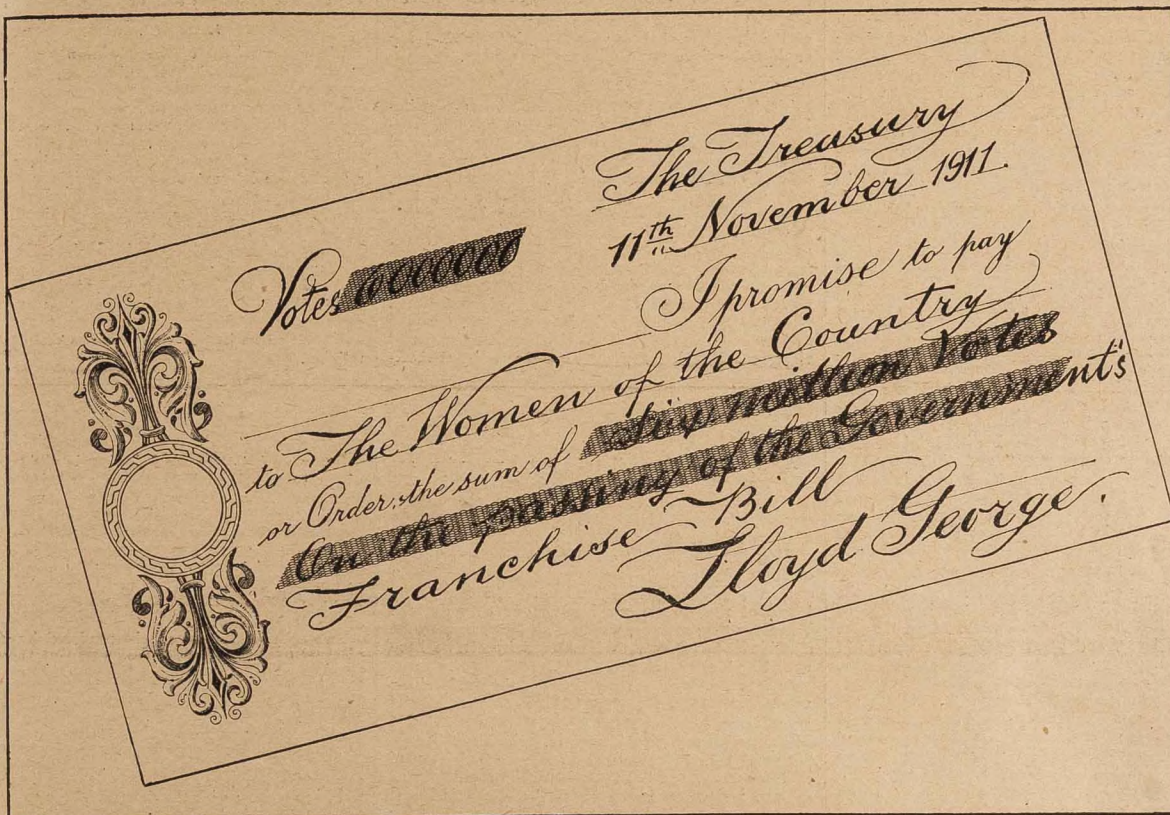 The Treasury
11th November 1911.
Votes 6000000
I promise to pay
to The Women of the Country
or Order, the sum of Six million Votes
On the passing of the Government's
Franchise Bill
Lloyd George.